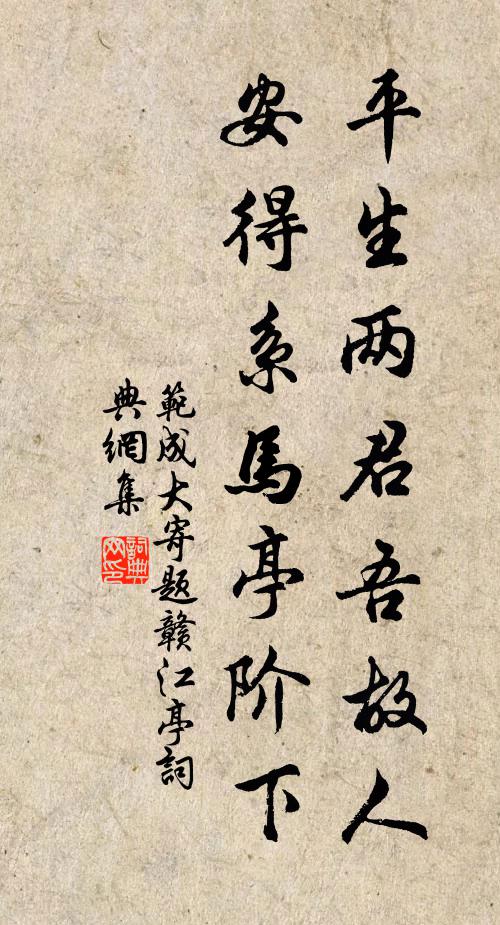 平生两君吾故人
安得系馬亭阶下
範成大寄题赣江亭詞
典網集
詞典
网印